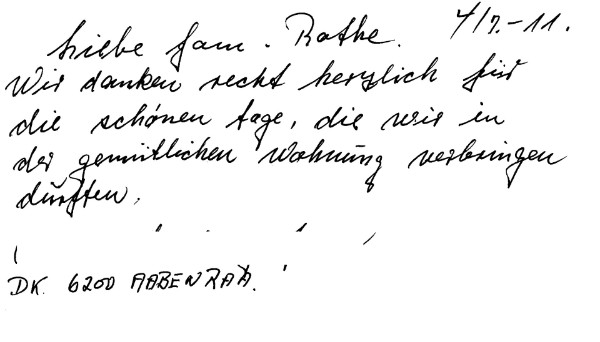 Liebe Fam. Rathe. 4/7.-11.
Wir danken recht herzlich für
die schönen tage, die wir in
der gemütlichen Wohnung verbringen
durften.
DK. 6200 AABENRAA.